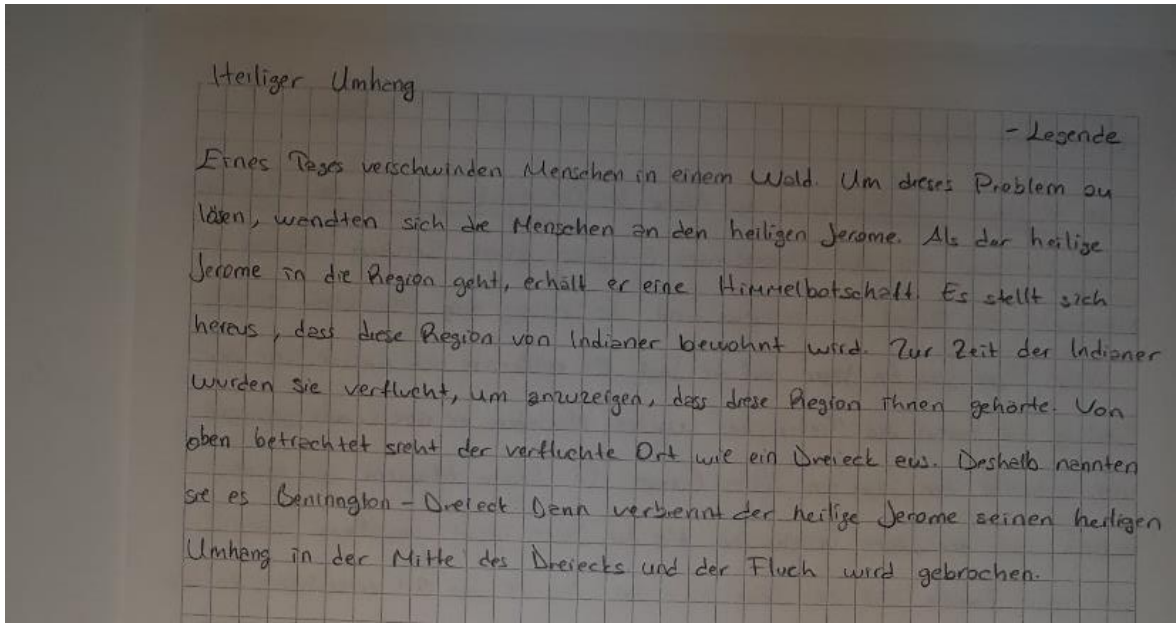 Heiliger Umhang
- Legende
Eines Tages verschwinden Menschen in einem Wald. Um dieses Problem zu
lösen, wendten sich die Menschen an den heiligen Jerome. Als der heilige
Jerome in die Region geht, erhält er eine Himmelbotschaft. Es stellt sich
heraus, dass diese Region von Indianer bewohnt wird. Zur Zeit der Indianer
wurden sie verflucht, um anzuzeigen, dass diese Region ihnen gehörte. Von
oben betrachtet sieht der verfluchte Ort wie ein Dreieck aus. Deshalb nannten
sie es Bennington-Dreieck Dann verbrennt der heilige Jerome seinen heiligen
Umhang in der Mitte des Dreiecks und der Fluch wird gebrochen.